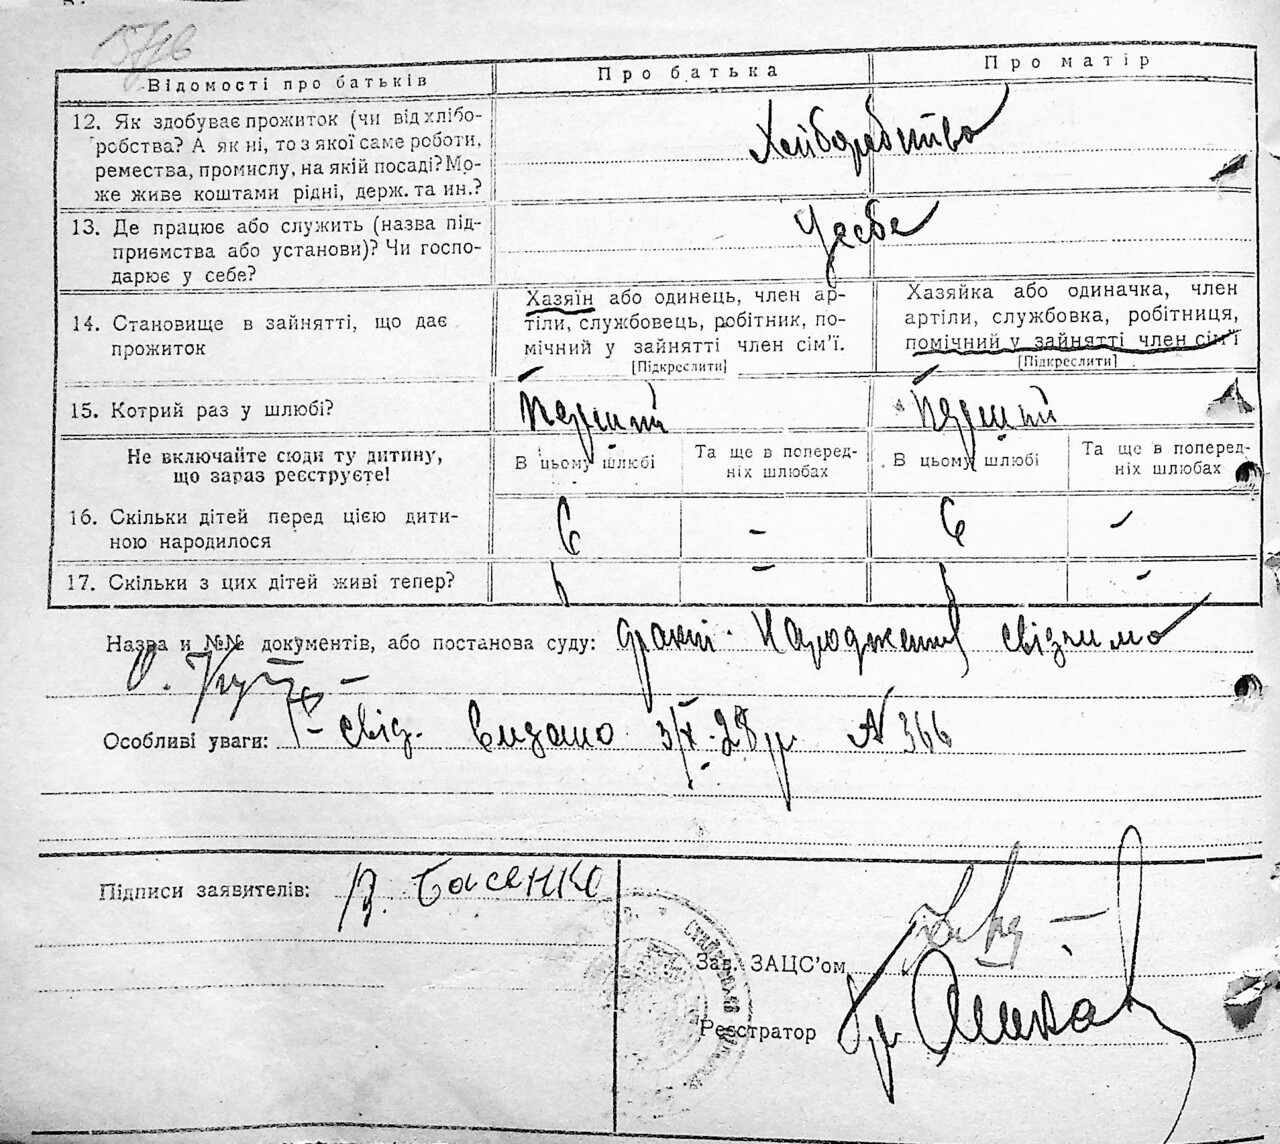 Відомості про батьків
Про батька
Про матір
12. Як здобуває прожиток (чи від хлібо-
робства? А як ні, то з якої саме роботи,
ремества, промислу, на якій посаді? Мо-
же живе коштами рідні, держ. та ин.?
Хліборобство
13. Де працює або служить (назва під-
приємства або установи)? Чи госпо-
дарює у себе?
У себе
14. Становище в зайнятті, що дає
прожиток
Хазяїн або одинець, член ар-
тіли, службовець, робітник, по-
мічний у зайнятті член сім'ї.
[Підкреслити]
Хазяйка або одиначка, член
артіли, службовка, робітниця,
помічний у зайнятті член сім'ї
[Підкреслити]
15. Котрий раз у шлюбі?
Перший
Перший
Не включайте сюди ту дитину,
що зараз реєструєте!
В цьому шлюбі
Та ще в поперед-
ніх шлюбах
В цьому шлюбі
Та ще в поперед-
ніх шлюбах
16. Скільки дітей перед цією дити-
ною народилося
6 - 6 -
17. Скільки з цих дітей живі тепер?
Назва и №№ документів, або постанова суду: факт народження свідчимо
О.
Особливі уваги: свід. видано 3/X-28 р № 366
Підписи заявителів: Басенко
Зав. ЗАЦС'ом
Реєстратор